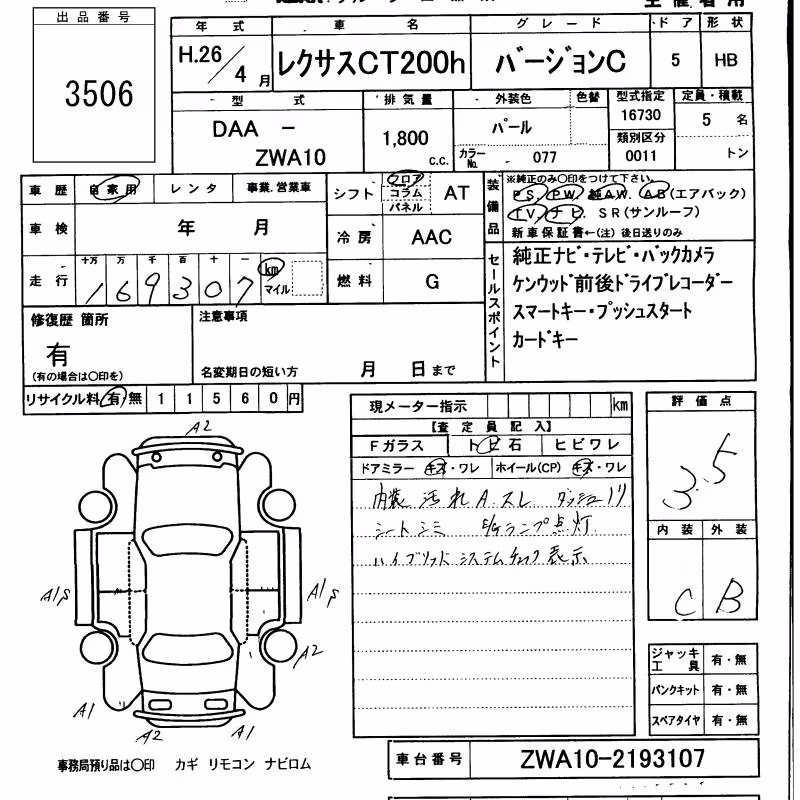 出品番号
3506
年式 車名 グレード ドア 形状
H.26/4月 レクサスCT200h バージョンC 5 HB
型式 排気量 外装色 色替 型式指定 定員・積載
DAA － ZWA10 1,800 c.c. パール 16730 5 名
カラーNo. - 077 類別区分 0011 トン
車歴 自家用 レンタ 事業.営業車
シフト フロア コラム パネル AT
装備品 ※純正のみ〇印をつけて下さい。
PS. PW. 純AW. AB(エアバック)
TV. ナビ. SR(サンルーフ)
新車保証書←(注)後日送りのみ
車検 年 月
冷房 AAC
走行 十万 万 千 百 十 一
169307 km マイル
燃料 G
セールスポイント
純正ナビ・テレビ・バックカメラ
ケンウッド前後ドライブレコーダー
スマートキー・プッシュスタート
カードキー
修復歴 箇所
有
(有の場合は〇印を)
注意事項
名変期日の短い方 月 日まで
リサイクル料 有・無 11560円
現メーター指示 km
【査定員記入】
Fガラス トビ石 ヒビワレ
ドアミラー キズ・ワレ ホイール(CP) キズ・ワレ
内装 汚れ A.スレ ダッシュ
シートシミ E/Gランプ点灯
ハイブリッドシステムチェック表示
評価点
3.5
内装 外装
C B
A2
A1
A1
A2
A1
A2
A1
ジャッキ工具 有・無
パンクキット 有・無
スペアタイヤ 有・無
事務局預り品は〇印 カギ リモコン ナビロム
車台番号 ZWA10-2193107